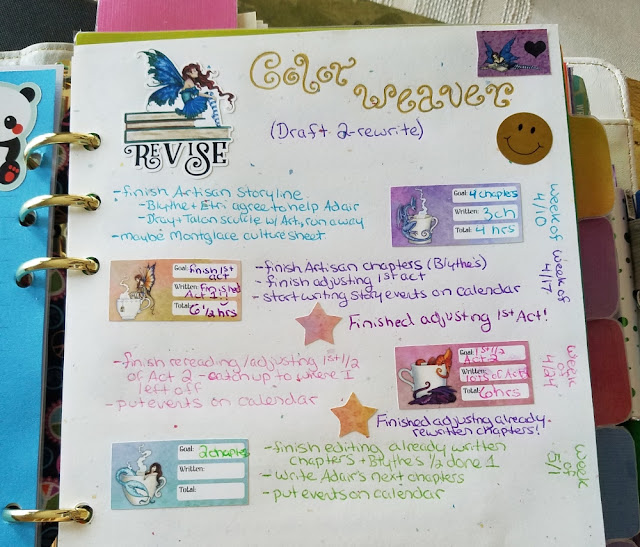 Color Weaver
REVISE
(Draft 2-rewrite)
-finish Artisan Storyline
-Blythe+Etri agree to help Adair
-Dray+Talan scuffle w/Art, run away
-maybe Montglace culture sheet
Goal: 4 chapters
Written: 3 ch
Total: 4 hrs
week of 4/10
Goal: finish 1st act
Written: finished Act 1!
Total: 6 1/2 hrs
-finish Artisan chapters (Blythe's)
-finish adjusting 1st act
-start writing story events on calendar
week of 4/17
Finished adjusting 1st Act!
-finish rereading/adjusting 1st 1/2
of Act 2 - catch up to where I
left off
-put events on calendar
Goal: 1st 1/2 Act 2
Written: lots of Act 2
Total: 6 hrs
week 4/24
Finished adjusting already-
rewritten chapters!
Goal: 2 chapters
Written:
Total:
-finish editing already written
chapters + Blythe's 1/2 done 1
-write Adair's next chapters
-put events on calendar
week of 5/1